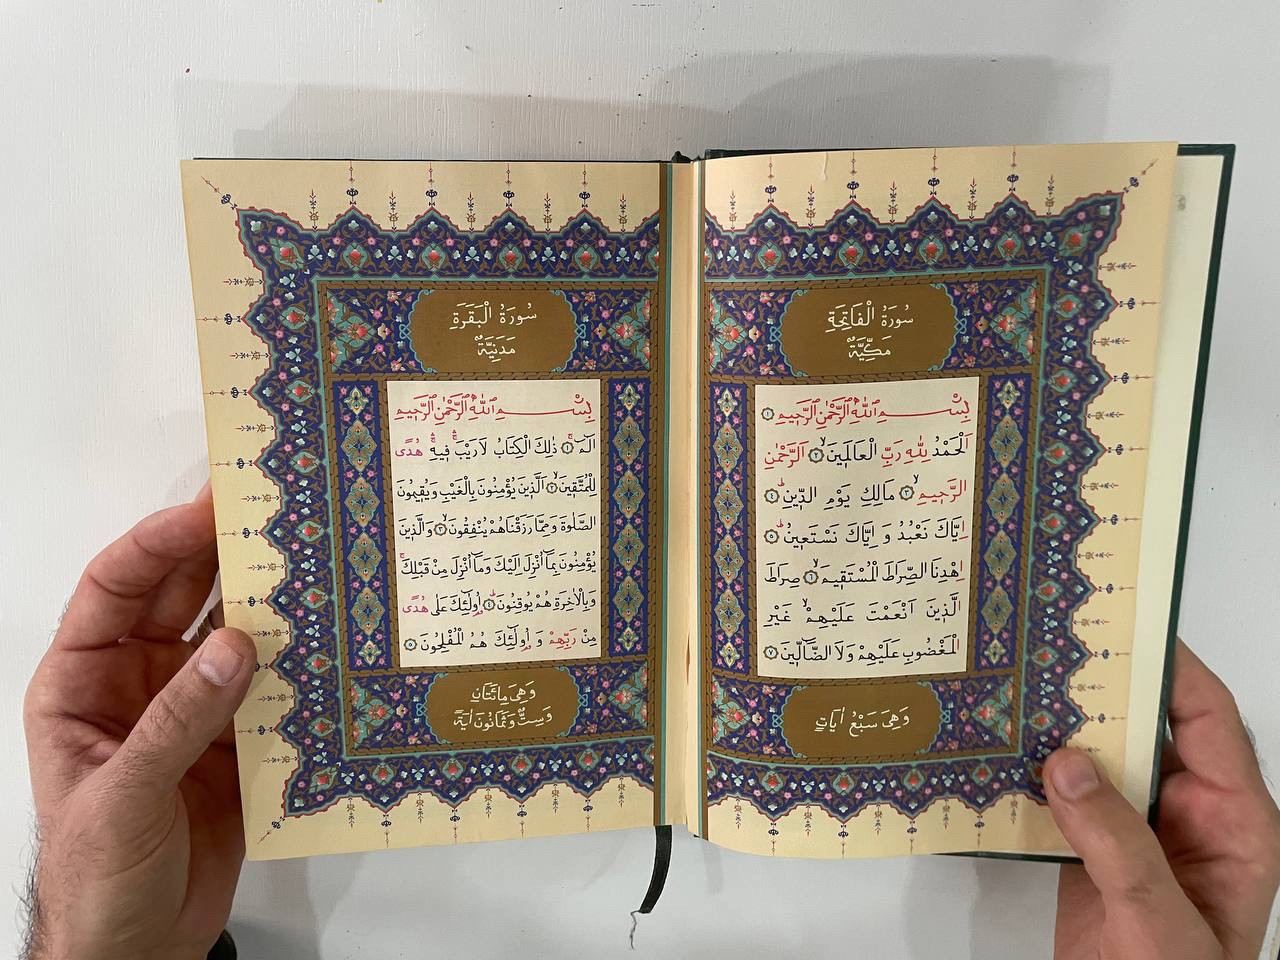 سُورَةُ الْفَاتِحَةِ
مَكِّيَّةٌ
بِسْمِ اللّٰهِ الرَّحْمٰنِ الرَّحِيمِ ﴿١﴾
اَلْحَمْدُ لِلّٰهِ رَبِّ الْعَالَمِينَۙ ﴿٢﴾ اَلرَّحْمٰنِ
الرَّحِيمِۙ ﴿٣﴾ مَالِكِ يَوْمِ الدِّينِۜ ﴿٤﴾
اِيَّاكَ نَعْبُدُ وَ اِيَّاكَ نَسْتَعِينُۜ ﴿٥﴾
اِهْدِنَا الصِّرَاطَ الْمُسْتَقِيمَۙ ﴿٦﴾ صِرَاطَ
الَّذِينَ اَنْعَمْتَ عَلَيْهِمْۙ غَيْرِ
الْمَغْضُوبِ عَلَيْهِمْ وَلَا الضَّٓالِّينَ ﴿٧﴾
وَهِيَ سَبْعُ اٰيَاتٍ
سُورَةُ الْبَقَرَةِ
مَدَنِيَّةٌ
بِسْمِ اللّٰهِ الرَّحْمٰنِ الرَّحِيمِ
الٓمٓۚ ﴿١﴾ ذٰلِكَ الْكِتَابُ لَا رَيْبَۚۛ فِيهِۚۛ هُدًى
لِلْمُتَّقِينَۙ ﴿٢﴾ اَلَّذِينَ يُؤْمِنُونَ بِالْغَيْبِ وَيُقِيمُونَ
الصَّلٰوةَ وَمِمَّا رَزَقْنَاهُمْ يُنْفِقُونَۙ ﴿٣﴾ وَالَّذِينَ
يُؤْمِنُونَ بِمَٓا اُنْزِلَ اِلَيْكَ وَمَٓا اُنْزِلَ مِنْ قَبْلِكَۚ
وَبِالْاٰخِرَةِ هُمْ يُوقِنُونَۜ ﴿٤﴾ اُو۬لٰٓئِكَ عَلٰى هُدًى
مِنْ رَبِّهِمْ وَ اُو۬لٰٓئِكَ هُمُ الْمُفْلِحُونَ ﴿٥﴾
وَهِيَ مِائَتَانِ
وَسِتٌّ وَثَمَانُونَ اٰيَةً